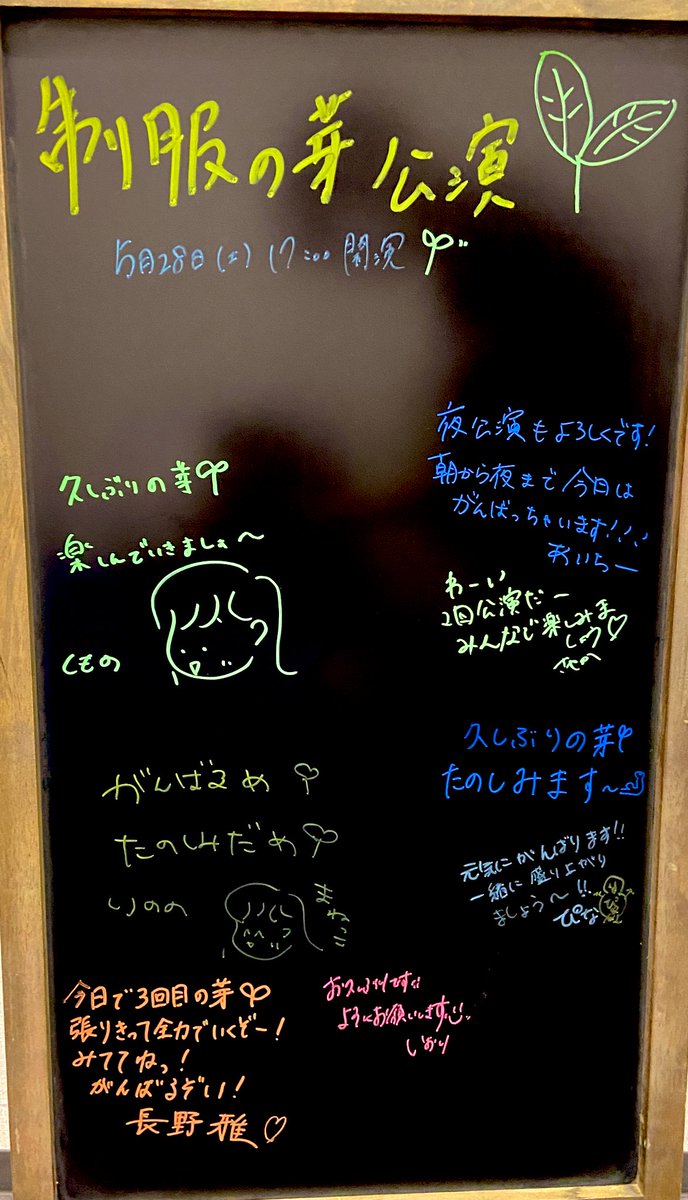 制服の芽公演
5月28日(土) 17:00 開演
夜公演もよろしくです!
朝から夜まで今日は
がんばっちゃいます!!!
あいちー
久しぶりの芽
楽しんでいきましょぉ〜
くもの
わーい
2回公演だー
みんなで楽しみま
しょう♡
久しぶりの芽
たのしみます〜
がんばるめ
たのしみだめ
いのの
まねっこ
元気にがんばります!!
一緒に盛り上がり
ましょう〜!!
ぴな
今日で3回目の芽
張りきって全力でいくぞー!
みててねっ!
がんばるぞい!
長野雅♡
お久しぶりです!!
よろしくお願いします
しおり